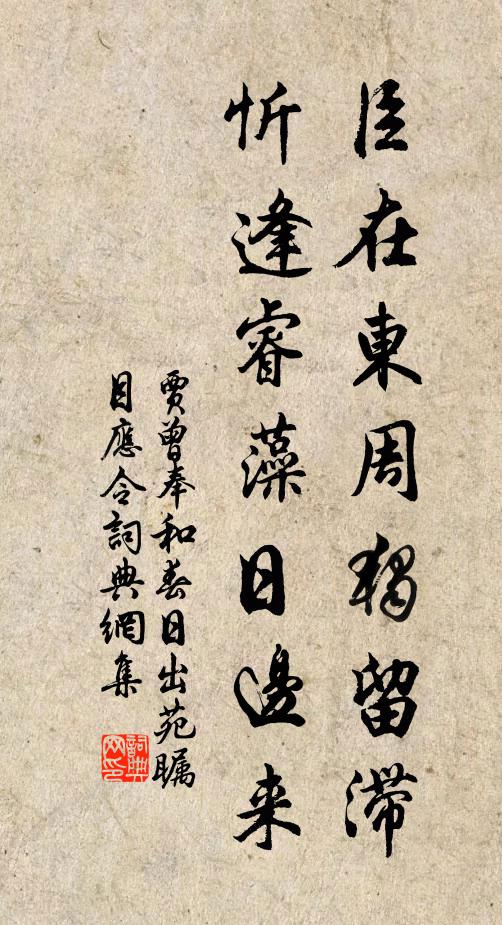 臣在東周獨留滯
忻逢睿藻日邊来
賈曾奉和春日出苑矚
目應令詞典網集
詞典
网印